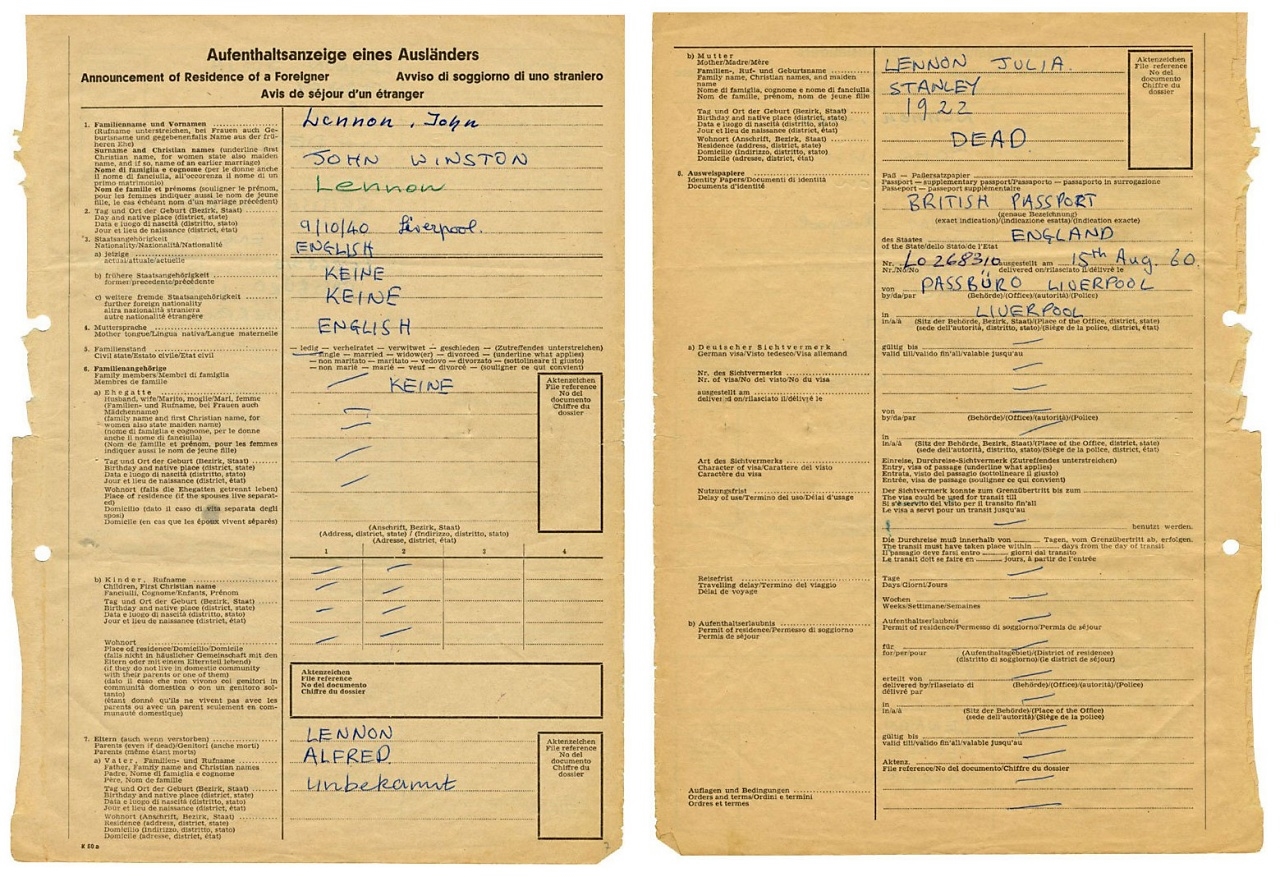 Aufenthaltsanzeige eines Ausländers
Announcement of Residence of a Foreigner Avviso di soggiorno di uno straniero
Avis de séjour d'un étranger
1. Familienname und Vornamen
(Rufname unterstreichen, bei Frauen auch Ge-
burtsname und gegebenenfalls Name aus der frü-
heren Ehe)
Surname and Christian names (underline first
Christian name, for women state also maiden
name, and if so, name of an earlier marriage)
Nome di famiglia e cognome (per le donne anche
il nome di fanciulla, all'occorenza il nome di un
primo matrimonio)
Nom de famille et prénoms (souligner le prénom,
pour les femmes indiquer aussi le nom de jeune
fille, le cas échéant nom d'un mariage précédent)
Lennon, John
JOHN WINSTON
Lennon
2. Tag und Ort der Geburt (Bezirk, Staat)
Day and native place (district, state)
Data e luogo di nascità (distritto, stato)
Jour et lieu de naissance (district, état)
9/10/40 Liverpool.
3. Staatsangehörigkeit
Nationality/Nazionalità/Nationalité
a) jetzige
actual/attuale/actuelle
ENGLISH
b) frühere Staatsangehörigkeit
former/precedente/précédente
KEINE
c) weitere fremde Staatsangehörigkeit
further foreign nationality
altra nazionalità straniera
autre nationalité étrangère
KEINE
4. Muttersprache
Mother tongue/Lingua nativa/Langue maternelle
ENGLISH
5. Familienstand
Civil state/Estato civile/Etat civil
— ledig — verheiratet — verwitwet — geschieden — (Zutreffendes unterstreichen)
— single — married — widow(er) — divorced — (underline what applies)
— non maritato — maritato — vedovo — divorzato — (sottolineare il giusto)
— non marié — marié — veuf — divorcé — (souligner ce qui convient)
6. Familienangehörige
Family members/Membri di famiglia
Membres de famille
KEINE
a) Ehegatte
Husband, wife/Marito, moglie/Mari, femme
(Familien- und Rufname, bei Frauen auch
Mädchenname)
(family name and first Christian name, for
women also state maiden name)
(nome di famiglia e cognome, per le donne
anche il nome di fanciulla)
(Nom de famille et prénom, pour les femmes
indiquer aussi le nom de jeune fille)
Tag und Ort der Geburt (Bezirk, Staat)
Birthday and native place (district, state)
Data e luogo di nascità (distritto, stato)
Jour et lieu de naissance (district, état)
Wohnort (falls die Ehegatten getrennt leben)
Place of residence (if the spouses live separat-
ed)
Domicilio (dato il caso di vita separata degli
sposi)
Domicile (en cas que les époux vivent séparés)
Aktenzeichen
File reference
No del
documento
Chiffre du
dossier
(Anschrift, Bezirk, Staat)
(Address, district, state) / (Indirizzo, distritto, stato)
(Adresse, district, état)
1 2 3 4
b) Kinder, Rufname
Children, First Christian name
Fanciulli, Cognome/Enfants, Prénom
Tag und Ort der Geburt (Bezirk, Staat)
Birthday and native place (district, state)
Data e luogo di nascità (distritto, stato)
Jour et lieu de naissance (district, état)
Wohnort
Place of residence/Domicilio/Domicile
(falls nicht in häuslicher Gemeinschaft mit den
Eltern oder mit einem Elternteil lebend)
(if they do not live in domestic community
with their parents or one of them)
(dato il caso che non vivono col genitori in
communità domestica o con un genitoro sol-
tanto)
(étant donné qu'ils ne vivent pas avec les
parents ou avec un parent seulement en com-
munauté domestique)
Aktenzeichen
File reference
No del documento
Chiffre du dossier
7. Eltern (auch wenn verstorben)
Parents (even if dead)/Genitori (anche morti)
Parents (même étant morts)
a) Vater, Familien- und Rufname
Father, Family name and Christian names
Padre, Nome di famiglia e cognome
Père, Nom de famille
LENNON
ALFRED.
Tag und Ort der Geburt (Bezirk, Staat)
Birthday and native place (district, state)
Data e luogo di nascità (distritto, stato)
Jour et lieu de naissance (district, état)
unbekannt
Wohnort (Anschrift, Bezirk, Staat)
Residence (address, district, state)
Domicilio (indirizzo, distritto, stato)
Domicile (adresse, district, état)
Aktenzeichen
File reference
No del
documento
Chiffre du
dossier
K 60 a
b) Mutter
Mother/Madre/Mère
Familien-, Ruf- und Geburtsname
Family name, Christian names, and maiden
name
Nome di famiglia, cognome e nome di fanciulla
Nom de famille, prénom, nom de jeune fille
LENNON JULIA.
STANLEY
Tag und Ort der Geburt (Bezirk, Staat)
Birthday and native place (district, state)
Data e luogo di nascità (distritto, stato)
Jour et lieu de naissance (district, état)
1922
Wohnort (Anschrift, Bezirk, Staat)
Residence (address, district, state)
Domicilio (indirizzo, distritto, stato)
Domicile (adresse, district, état)
DEAD
Aktenzeichen
File reference
No del
documento
Chiffre du
dossier
8. Ausweispapiere
Identity Papers/Documenti di identità
Documents d'identité
Paß — Paßersatzpapier
Passport — supplementary passport/Passaporto — passaporto in surrogazione
Passeport — passeport supplémentaire
BRITISH PASSPORT
(genaue Bezeichnung)
(exact indication)/(indicazione esatta)/(indication exacte)
des Staates ENGLAND
of the State/dello Stato/de l'Etat
Nr. LO 268310 ausgestellt am 15th Aug. 60.
Nr./No/No delivered on/rilasciato il/délivré le
von PASSBÜRO LIVERPOOL
by/da/par (Behörde)/(Office)/(autorità)/(Police)
in LIVERPOOL
in/a/à (Sitz der Behörde, Bezirk, Staat)/(Place of the Office, district, state)
(sede dell'autorità, distritto, stato)/(Siège de la police, district, état)
a) Deutscher Sichtvermerk
German visa/Visto tedesco/Visa allemand
gültig bis
valid till/valido fin'all/valable jusqu'au
Nr. des Sichtvermerks
Nr. of visa/No del visto/No du visa
ausgestellt am
delivered on/rilasciato il/délivré le
von
by/da/par (Behörde)/(Office)/(autorità)/(Police)
in
in/a/à (Sitz der Behörde, Bezirk, Staat)/(Place of the Office, district, state)
(sede dell'autorità, distritto, stato)/(Siège de la police, district, état)
Art des Sichtvermerks
Character of visa/Carattere del visto
Caractère du visa
Einreise, Durchreise-Sichtvermerk (Zutreffendes unterstreichen)
Entry, visa of passage (underline what applies)
Entrata, visto del passagio (sottolineare il giusto)
Entrée, visa de passage (souligner ce qui convient)
Nutzungsfrist
Delay of use/Termino del uso/Délai d'usage
Der Sichtvermerk konnte zum Grenzübertritt bis zum
The visa could be used for transit till
Si è servito del visto per il transito fin'all
Le visa a servi pour un transit jusqu'au
benutzt werden.
Die Durchreise muß innerhalb von Tagen, vom Grenzübertritt ab, erfolgen.
The transit must have taken place within days from the day of transit
Il passagio deve farsi entro giorni dal transito
Le transit doit se faire en jours, à partir de l'entrée
Reisefrist
Travelling delay/Termino del viaggio
Délai de voyage
Tage
Days/Giorni/Jours
Wochen
Weeks/Settimane/Semaines
b) Aufenthaltserlaubnis
Permit of residence/Permesso di soggiorno
Permis de séjour
Aufenthaltserlaubnis
Permit of residence/Permesso di soggiorno/Permis de séjour
für
for/per/pour (Aufenthaltsgebiet)/(District of residence)
(distritto di soggiorno)/(le district de séjour)
erteilt von
delivered by/rilasciato di (Behörde)/(Office)/(autorità)/(Police)
délivré par
in
in/a/à (Sitz der Behörde)/(Place of the Office)
(sede dell'autorità)/(Siège de la police)
gültig bis
valid till/valido fin'all/valable jusqu'au
Aktenz.
File reference/No del documento/Chiffre du dossier
Auflagen und Bedingungen
Orders and terms/Ordini e termini
Ordres et termes